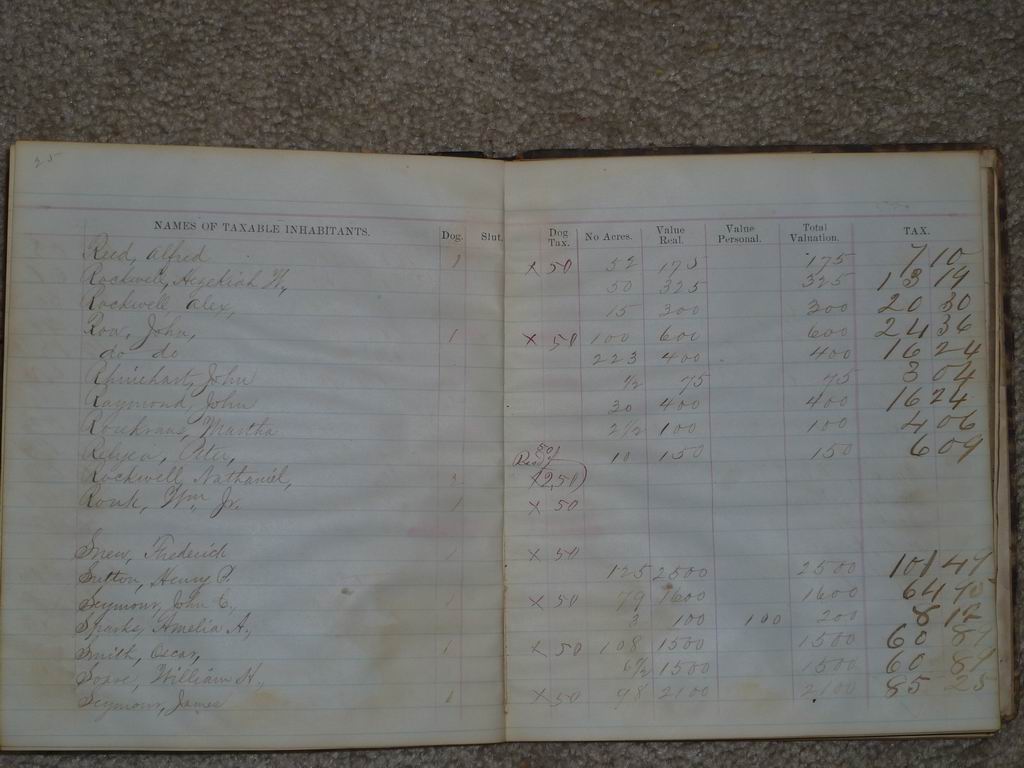 25
NAMES OF TAXABLE INHABITANTS. Dog. Slut. Dog Tax. No Acres. Value Real. Value Personal. Total Valuation. TAX.
Reed, Alfred 1 x 50 52 175 175 7 10
Rockwell, Hezekiah W, 50 325 325 13 19
Rockwell Alex, 15 300 300 20 30
Row, John, 1 x 50 100 600 600 24 36
do do 223 400 400 16 24
Rhinehart, John 1/2 75 75 3 04
Raymond, John 30 400 400 16 24
Martha 2 1/2 100 100 4 06
10 150 150 6 09
Rockwell, Nathaniel, x 250
Wm, Jr. 1 x 50
Frederick 1 x 50
Sutton, Henry P. 125 2500 2500 101 47
Seymour, John C, 1 x 50 79 1600 1600 64
Sparks, Amelia A, 3 100 100 200 8 12
Smith, Oscar, 1 x 50 108 1500 1500 60
William H, 6 1/2 1500 1500 60
Seymour, James 1 x 50 98 2100 2100 85 25